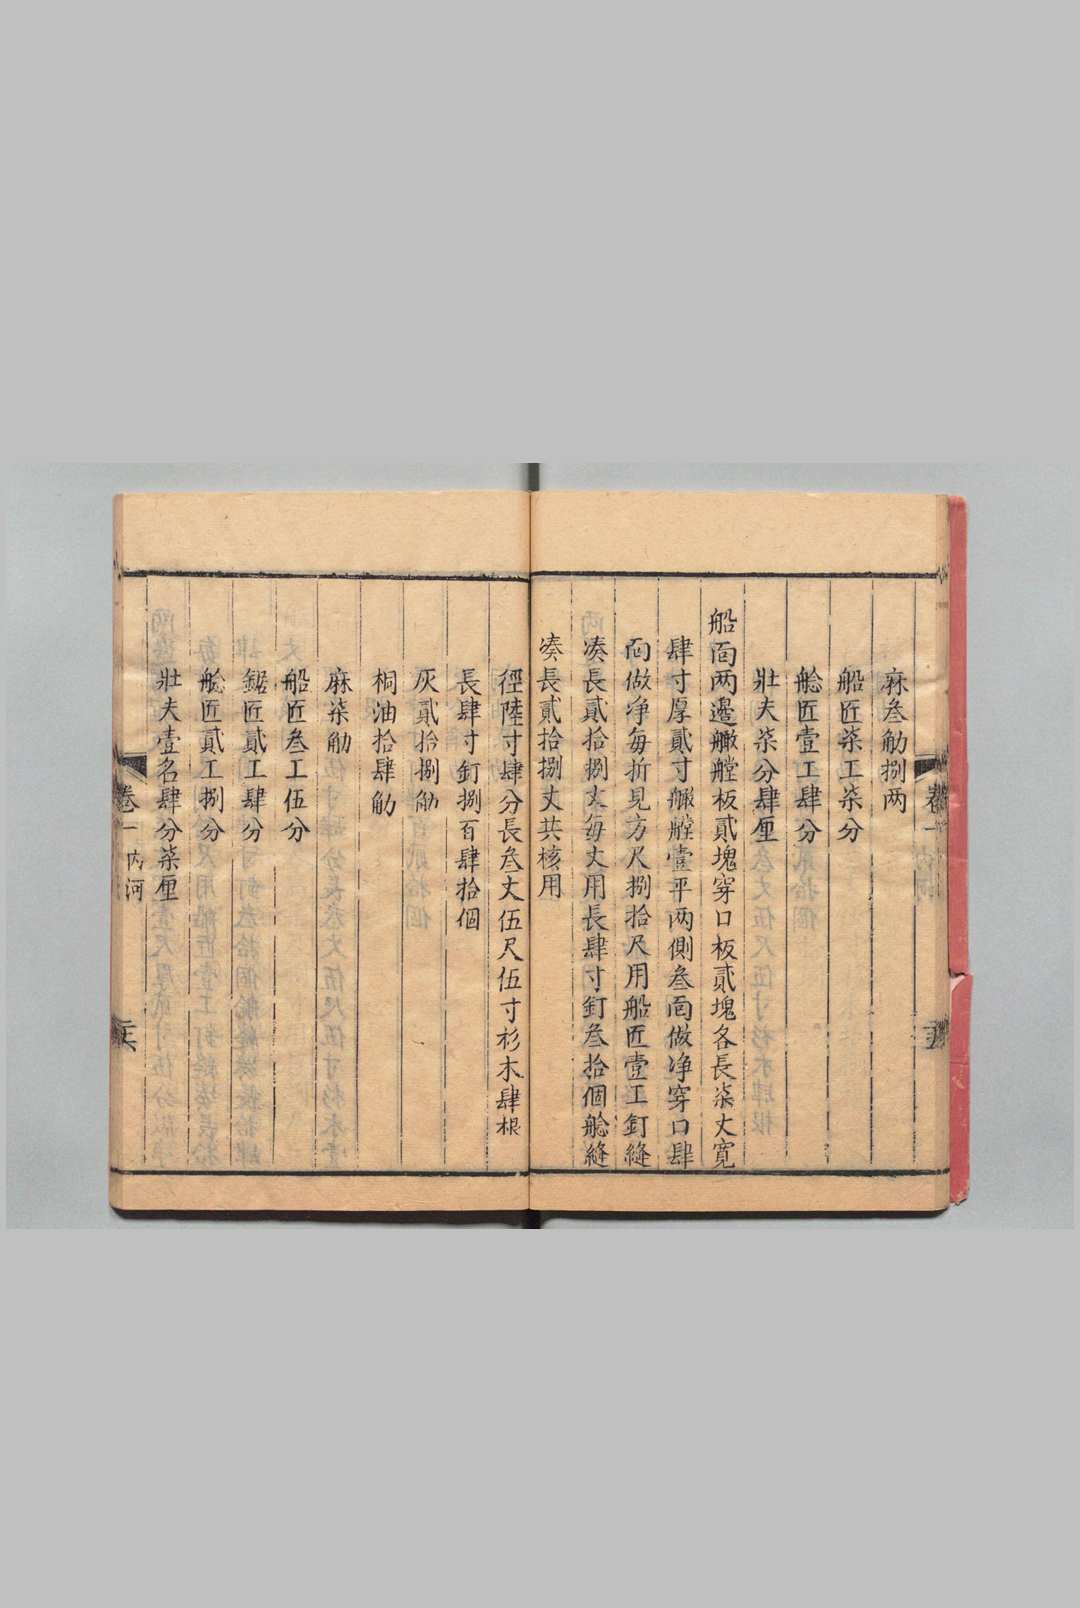 麻叁觔捌两
船匠柒工柒分
艌匠壹工肆分
壯夫柒分肆厘
船面两邊𦪇艡板貳塊穿口板貳塊各長柒丈寬
肆寸厚貳寸𦪇艡壹平两側叁面做净穿口肆
面做净每折見方尺捌拾尺用船匠壹工釘縫
凑長貳拾捌丈每丈用長肆寸釘叁拾個艌縫
凑長貳拾捌丈共核用
徑陸寸肆分長叁丈伍尺伍寸杉木肆根
長肆寸釘捌百肆拾個
灰貳拾捌觔
桐油拾肆觔
麻柒觔
船匠叁工伍分
鋸匠貳工肆分
艌匠貳工捌分
壯夫壹名肆分柒厘
卷一
内河